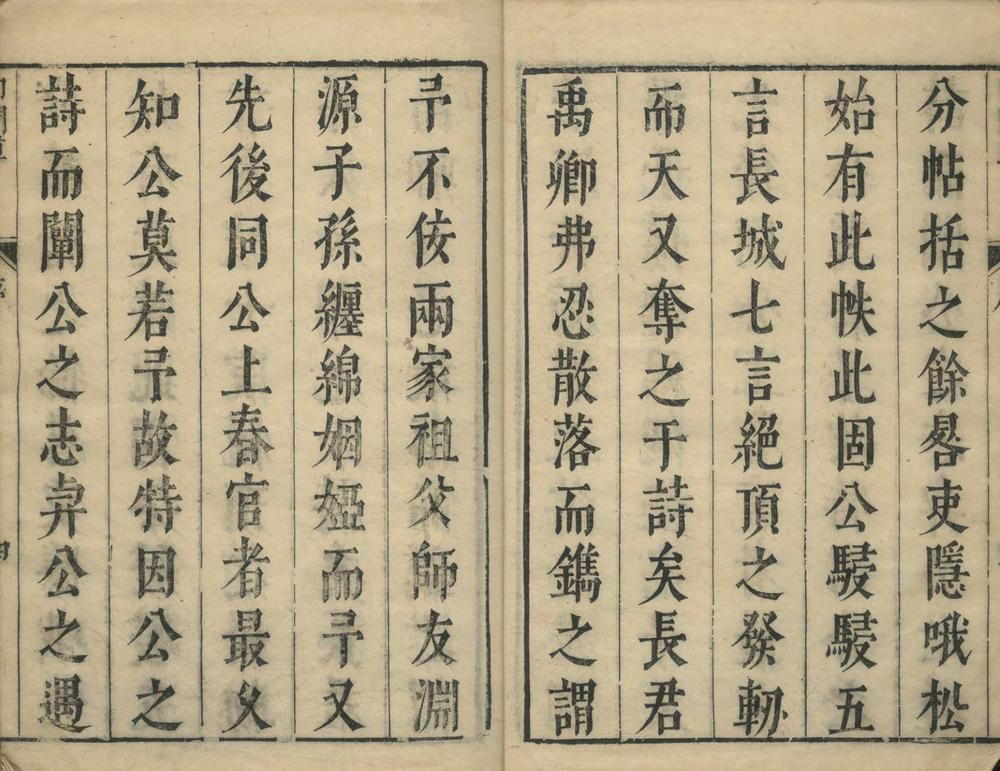 分帖括之餘晷吏隱哦松
始有此帙此固公駸駸五
言長城七言絕頂之發軔
而天又奪之于詩矣長君
禹卿弗忍散落而鐫之謂
予不佞兩家祖父師友淵
源子孫纏綿姻婭而予又
先後同公上春官者最久
知公莫若予故特因公之
詩而闡公之志弁公之遇